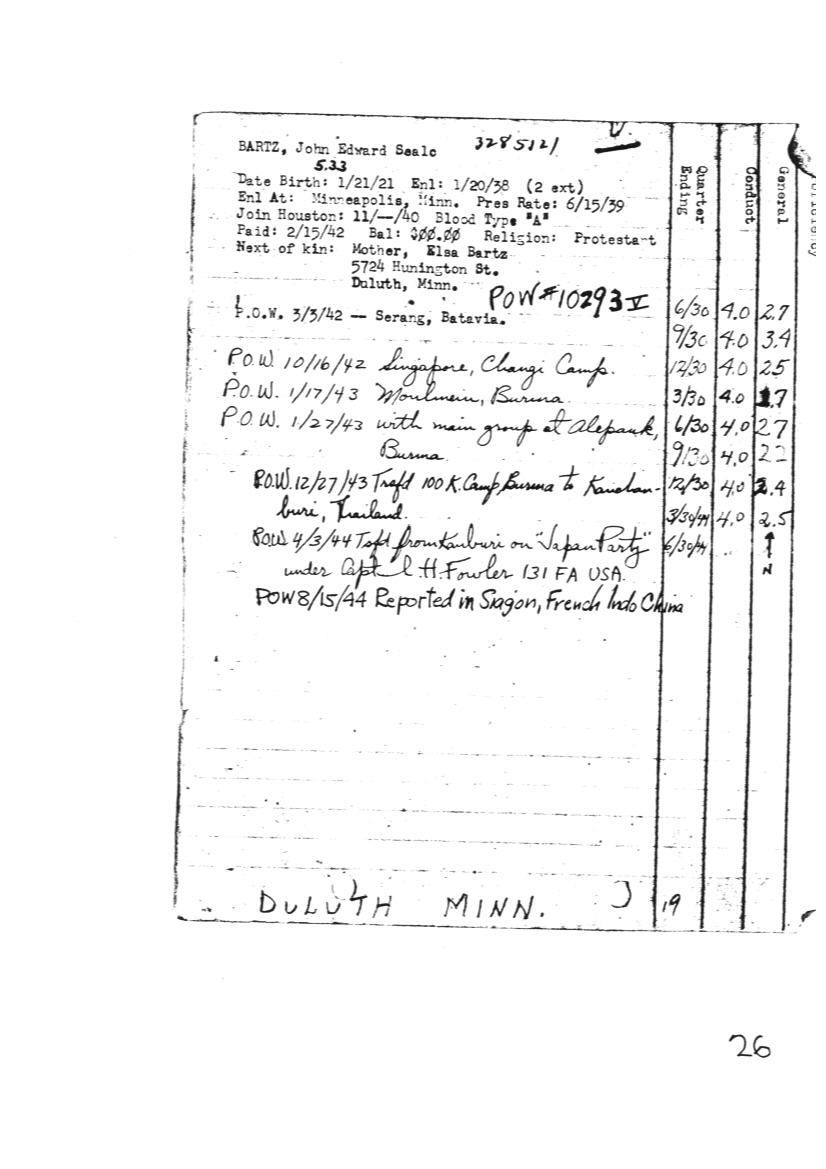 BARTZ, John Edward Sea1c 3285121 V.
5.33
Date Birth: 1/21/21 Enl: 1/20/38 (2 ext)
Enl At: Minneapolis, Minn. Pres Rate: 6/15/39
Join Houston: 11/--/40 Blood Type "A"
Paid: 2/15/42 Bal: $00.00 Religion: Protestant
Next of kin: Mother, Elsa Bartz
5724 Hunington St.
Duluth, Minn.
POW #10293 V
P.O.W. 3/3/42 -- Serang, Batavia.
P.O.W. 10/16/42 Singapore, Changi Camp.
P.O.W. 1/17/43 Moulmein, Burma.
P.O.W. 1/27/43 with main group at Alepauk,
Burma.
P.O.W. 12/27/43 Trafd 100 K. Camp, Burma to Kanchan-
buri, Thailand.
POW 4/3/44 Tsfd from Kanburi on "Japan Party"
under Capt H. Fowler 131 FA USA.
POW 8/15/44 Reported in Siagon, French Indo China
Quarter Ending Conduct General
6/30 4.0 2.7
9/30 4.0 3.4
12/30 4.0 2.5
3/30 4.0 1.7
6/30 4.0 2.7
9/30 4.0 2.2
12/30 4.0 2.4
3/30/44 4.0 2.5
6/30/44 ..
N
DULUTH MINN. J 19
26